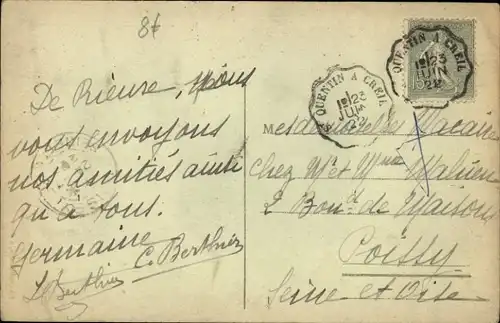 8f
De Rieux, Nous
vous envoyons
nos amitiés ainsi
qu'a tous.
Germaine
C. Berthier
Berthier
Sᵗ QUENTIN A CREIL
1ᴱ/23
JUIN
22
QUENTIN A CREIL
1ᴱ/23
JUIN
22
Mesdemoiselles Macaire
chez Mr et Mme
2 Bould de
Poissy
Seine et Oise